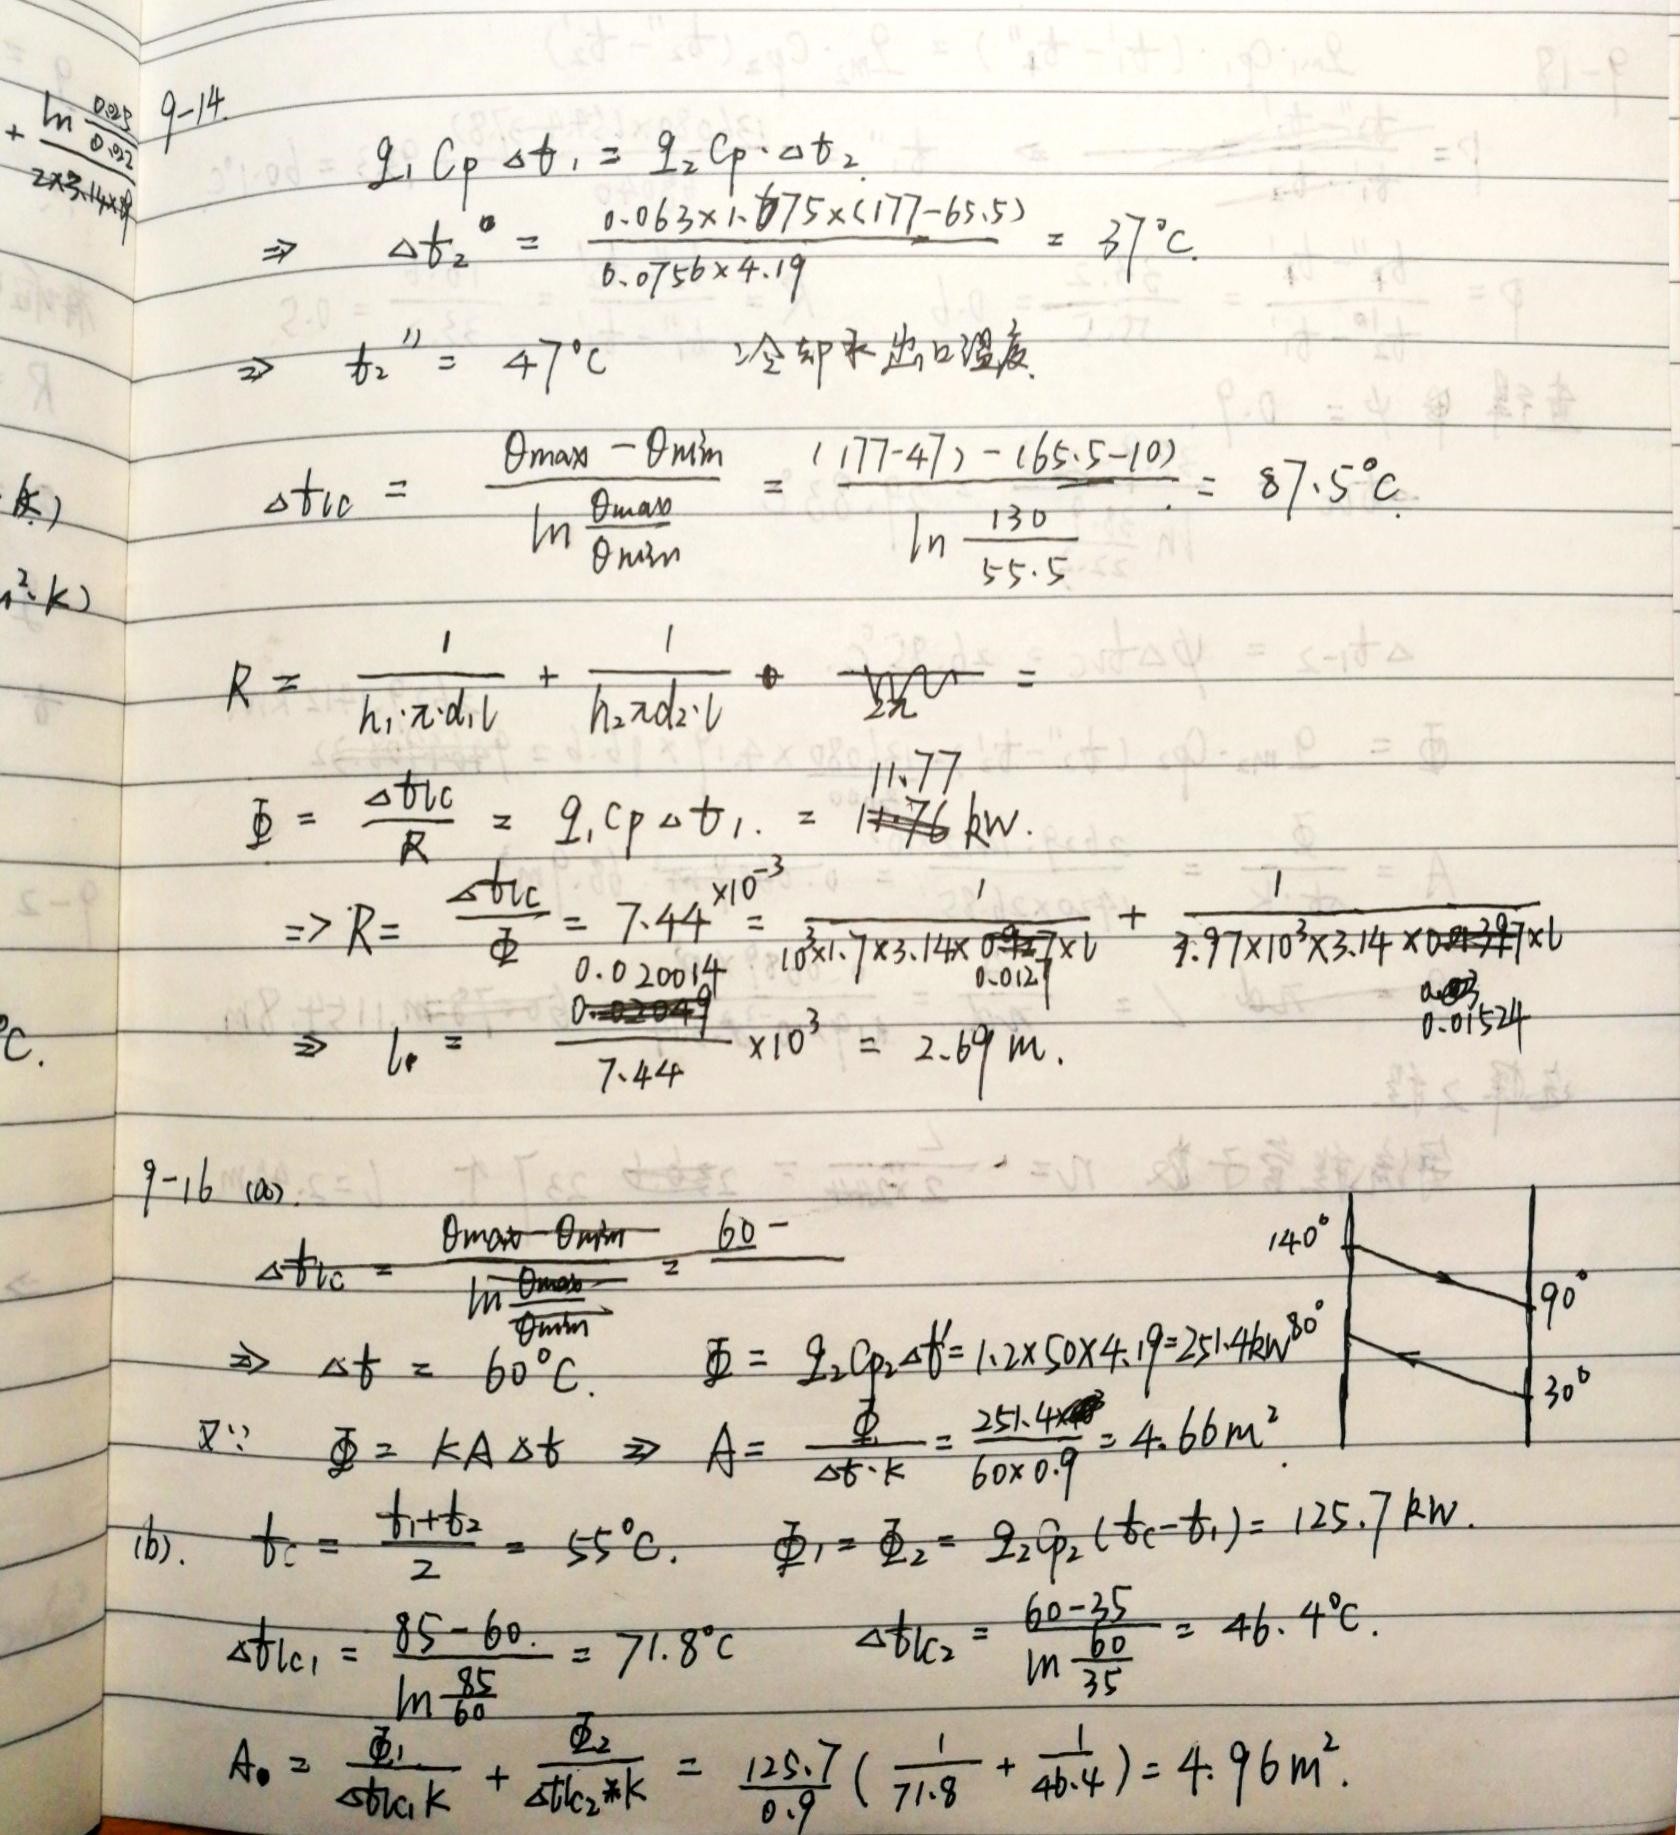 + ln 0.025/0.022 / 2×3.14×
9-14.
q₁ Cp Δt₁ = q₂ Cp·Δt₂.
⇒ Δt₂ = 0.063×1.675×(177-65.5) / 0.0756×4.19 = 37°C.
⇒ t₂'' = 47°C 冷却水出口温度.
Δtlc = θmax - θmin / ln θmax/θmin = (177-47) - (65.5-10) / ln 130/55.5 = 87.5°C.
k)
²·k)
R = 1/h₁·π·d₁l + 1/h₂πd₂·l =
Φ = Δtlc/R = q₁Cp Δt₁. = 11.77 kW.
⇒ R = Δtlc/Φ = 7.44×10⁻³ = 1/10³×1.7×3.14×0.0127×l + 1/3.97×10³×3.14×0.01524×l
°C.
⇒ l = 0.020014/7.44 ×10³ = 2.69 m.
9-16 (a).
Δtlc = θmax - θmin / ln θmax/θmin = 60 -
140°
90°
⇒ Δt = 60°C. Φ = q₂Cp₂Δt' = 1.2×50×4.19 = 251.4kW
80°
30°
又∵ Φ = kAΔt ⇒ A = Φ/Δt·k = 251.4/60×0.9 = 4.66m².
(b). tc = t₁+t₂/2 = 55°C. Φ₁ = Φ₂ = q₂Cp₂(tc-t₁) = 125.7 kW.
Δtlc₁ = 85-60. / ln 85/60 = 71.8°C Δtlc₂ = 60-35 / ln 60/35 = 46.4°C.
A = Φ₁/Δtlc₁k + Φ₂/Δtlc₂*k = 125.7/0.9 (1/71.8 + 1/46.4) = 4.96m².